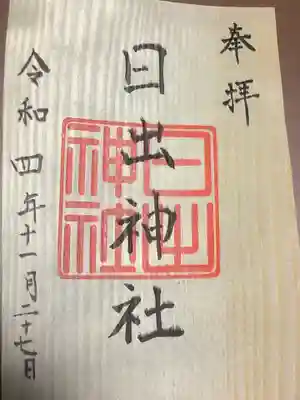 奉拝
日出神社
日出神社
令和四年十一月二十七日